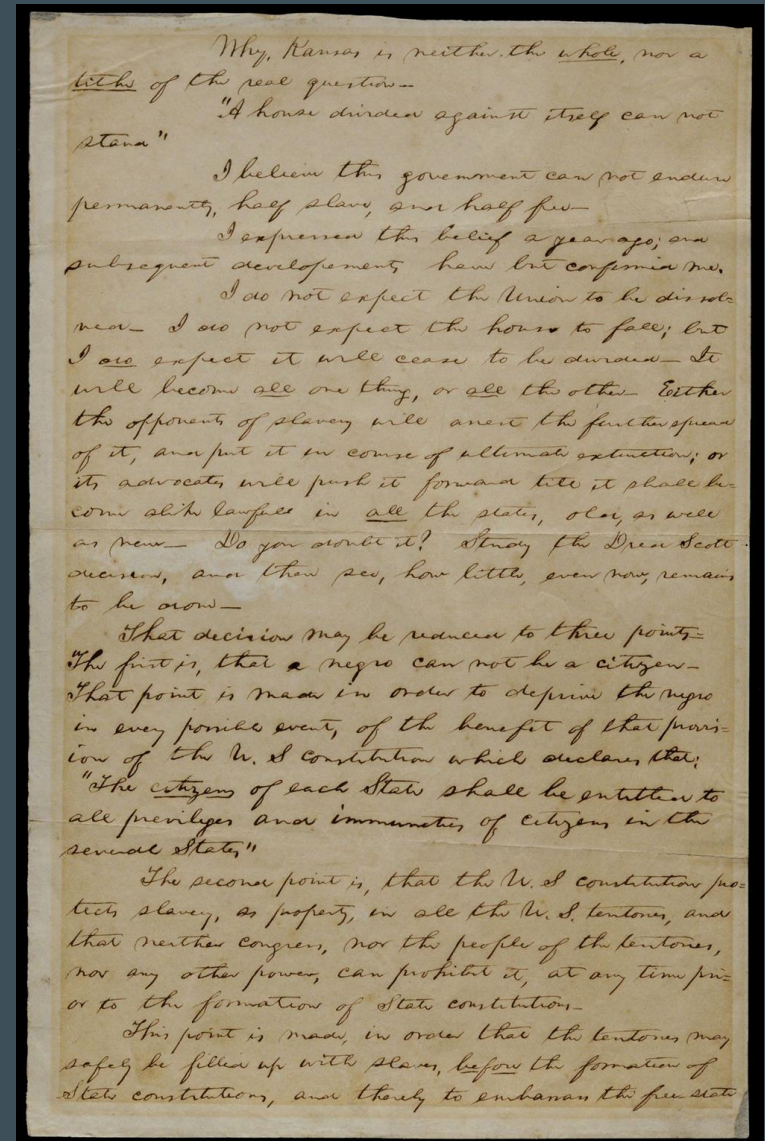 Why, Kansas is neither the whole, nor a
tithe of the real question—
"A house divided against itself can not
stand"
I believe this government can not endure
permanently, half slave, and half free—
I expressed this belief a year ago; and
subsequent developements have but confirmed me.
I do not expect the Union to be dissol=
ved— I do not expect the house to fall; but
I do expect it will cease to be divided— It
will become all one thing, or all the other— Either
the opponents of slavery will arrest the further spread
of it, and put it in course of ultimate extinction; or
its advocates will push it forward till it shall be=
come alike lawfull in all the states, old, as well
as new— Do you doubt it? Study the Dred Scott
decision, and then see, how little, even now, remains
to be done—
That decision may be reduced to three points=
"The first is, that a negro can not be a citizen—
That point is made in order to deprive the negro
in every possible event, of the benefit of that provis=
ion of the U. S constitution which declares that:
"The citizens of each State shall be entitled to
all previleges and immunities of citizens in the
several States"
The second point is, that the U. S constitution pro=
tects slavery, as property, in all the U. S. territories, and
that neither congress, nor the people of the territories,
nor any other power, can prohibit it, at any time pri=
or to the formation of State constitutions—
This point is made, in order that the territories may
safely be filled up with slaves, before the formation of
State constitutions, and thereby to embarrass the free state